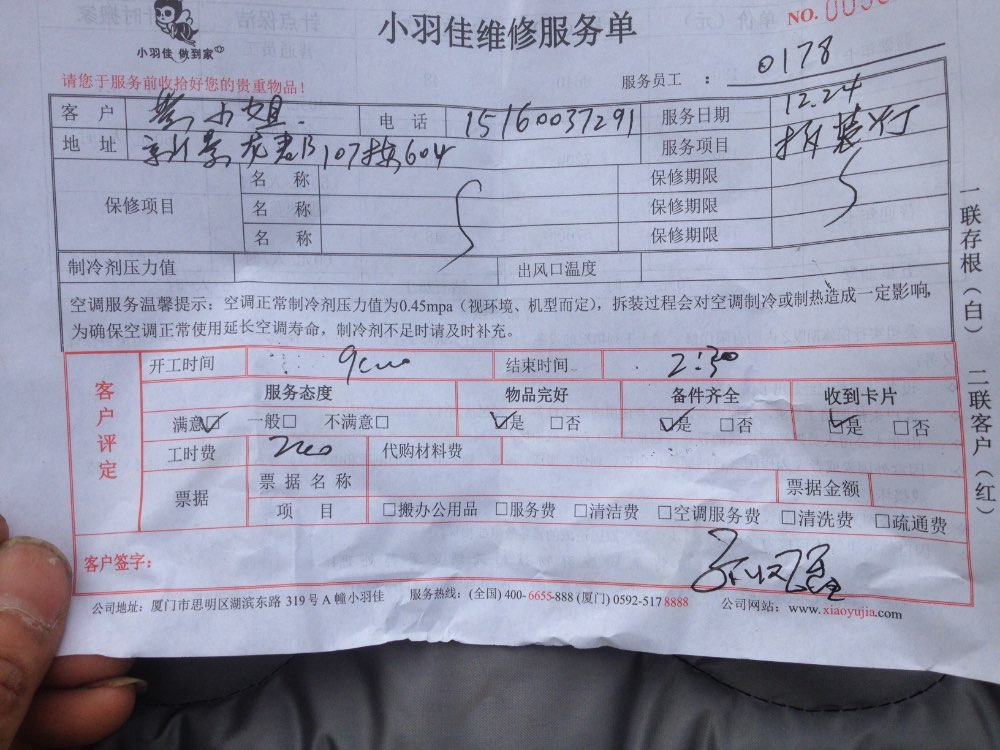 小羽佳 做到家
小羽佳维修服务单
NO.
请您于服务前收拾好您的贵重物品!
服务员工 : 0178
客 户 小姐 电 话 15160037291 服务日期 12.24
地 址 景龙君B107栋604 服务项目 拆装灯
保修项目
名 称 保修期限
名 称 保修期限
名 称 保修期限
制冷剂压力值 出风口温度
空调服务温馨提示：空调正常制冷剂压力值为0.45mpa（视环境、机型而定），拆装过程会对空调制冷或制热造成一定影响,
为确保空调正常使用延长空调寿命，制冷剂不足时请及时补充。
客户评定
开工时间 结束时间 2:30
服务态度 物品完好 备件齐全 收到卡片
满意□ 一般□ 不满意□ □是 □否 □是 □否 □是 □否
工时费 代购材料费
票据 票据名称 票据金额
项 目 □搬办公用品 □服务费 □清洁费 □空调服务费 □清洗费 □疏通费
客户签字:
公司地址: 厦门市思明区湖滨东路 319号A幢小羽佳 服务热线: (全国) 400-6655-888 (厦门) 0592-517 8888 公司网站: www.xiaoyujia.com
一联存根（白） 二联客户（红）